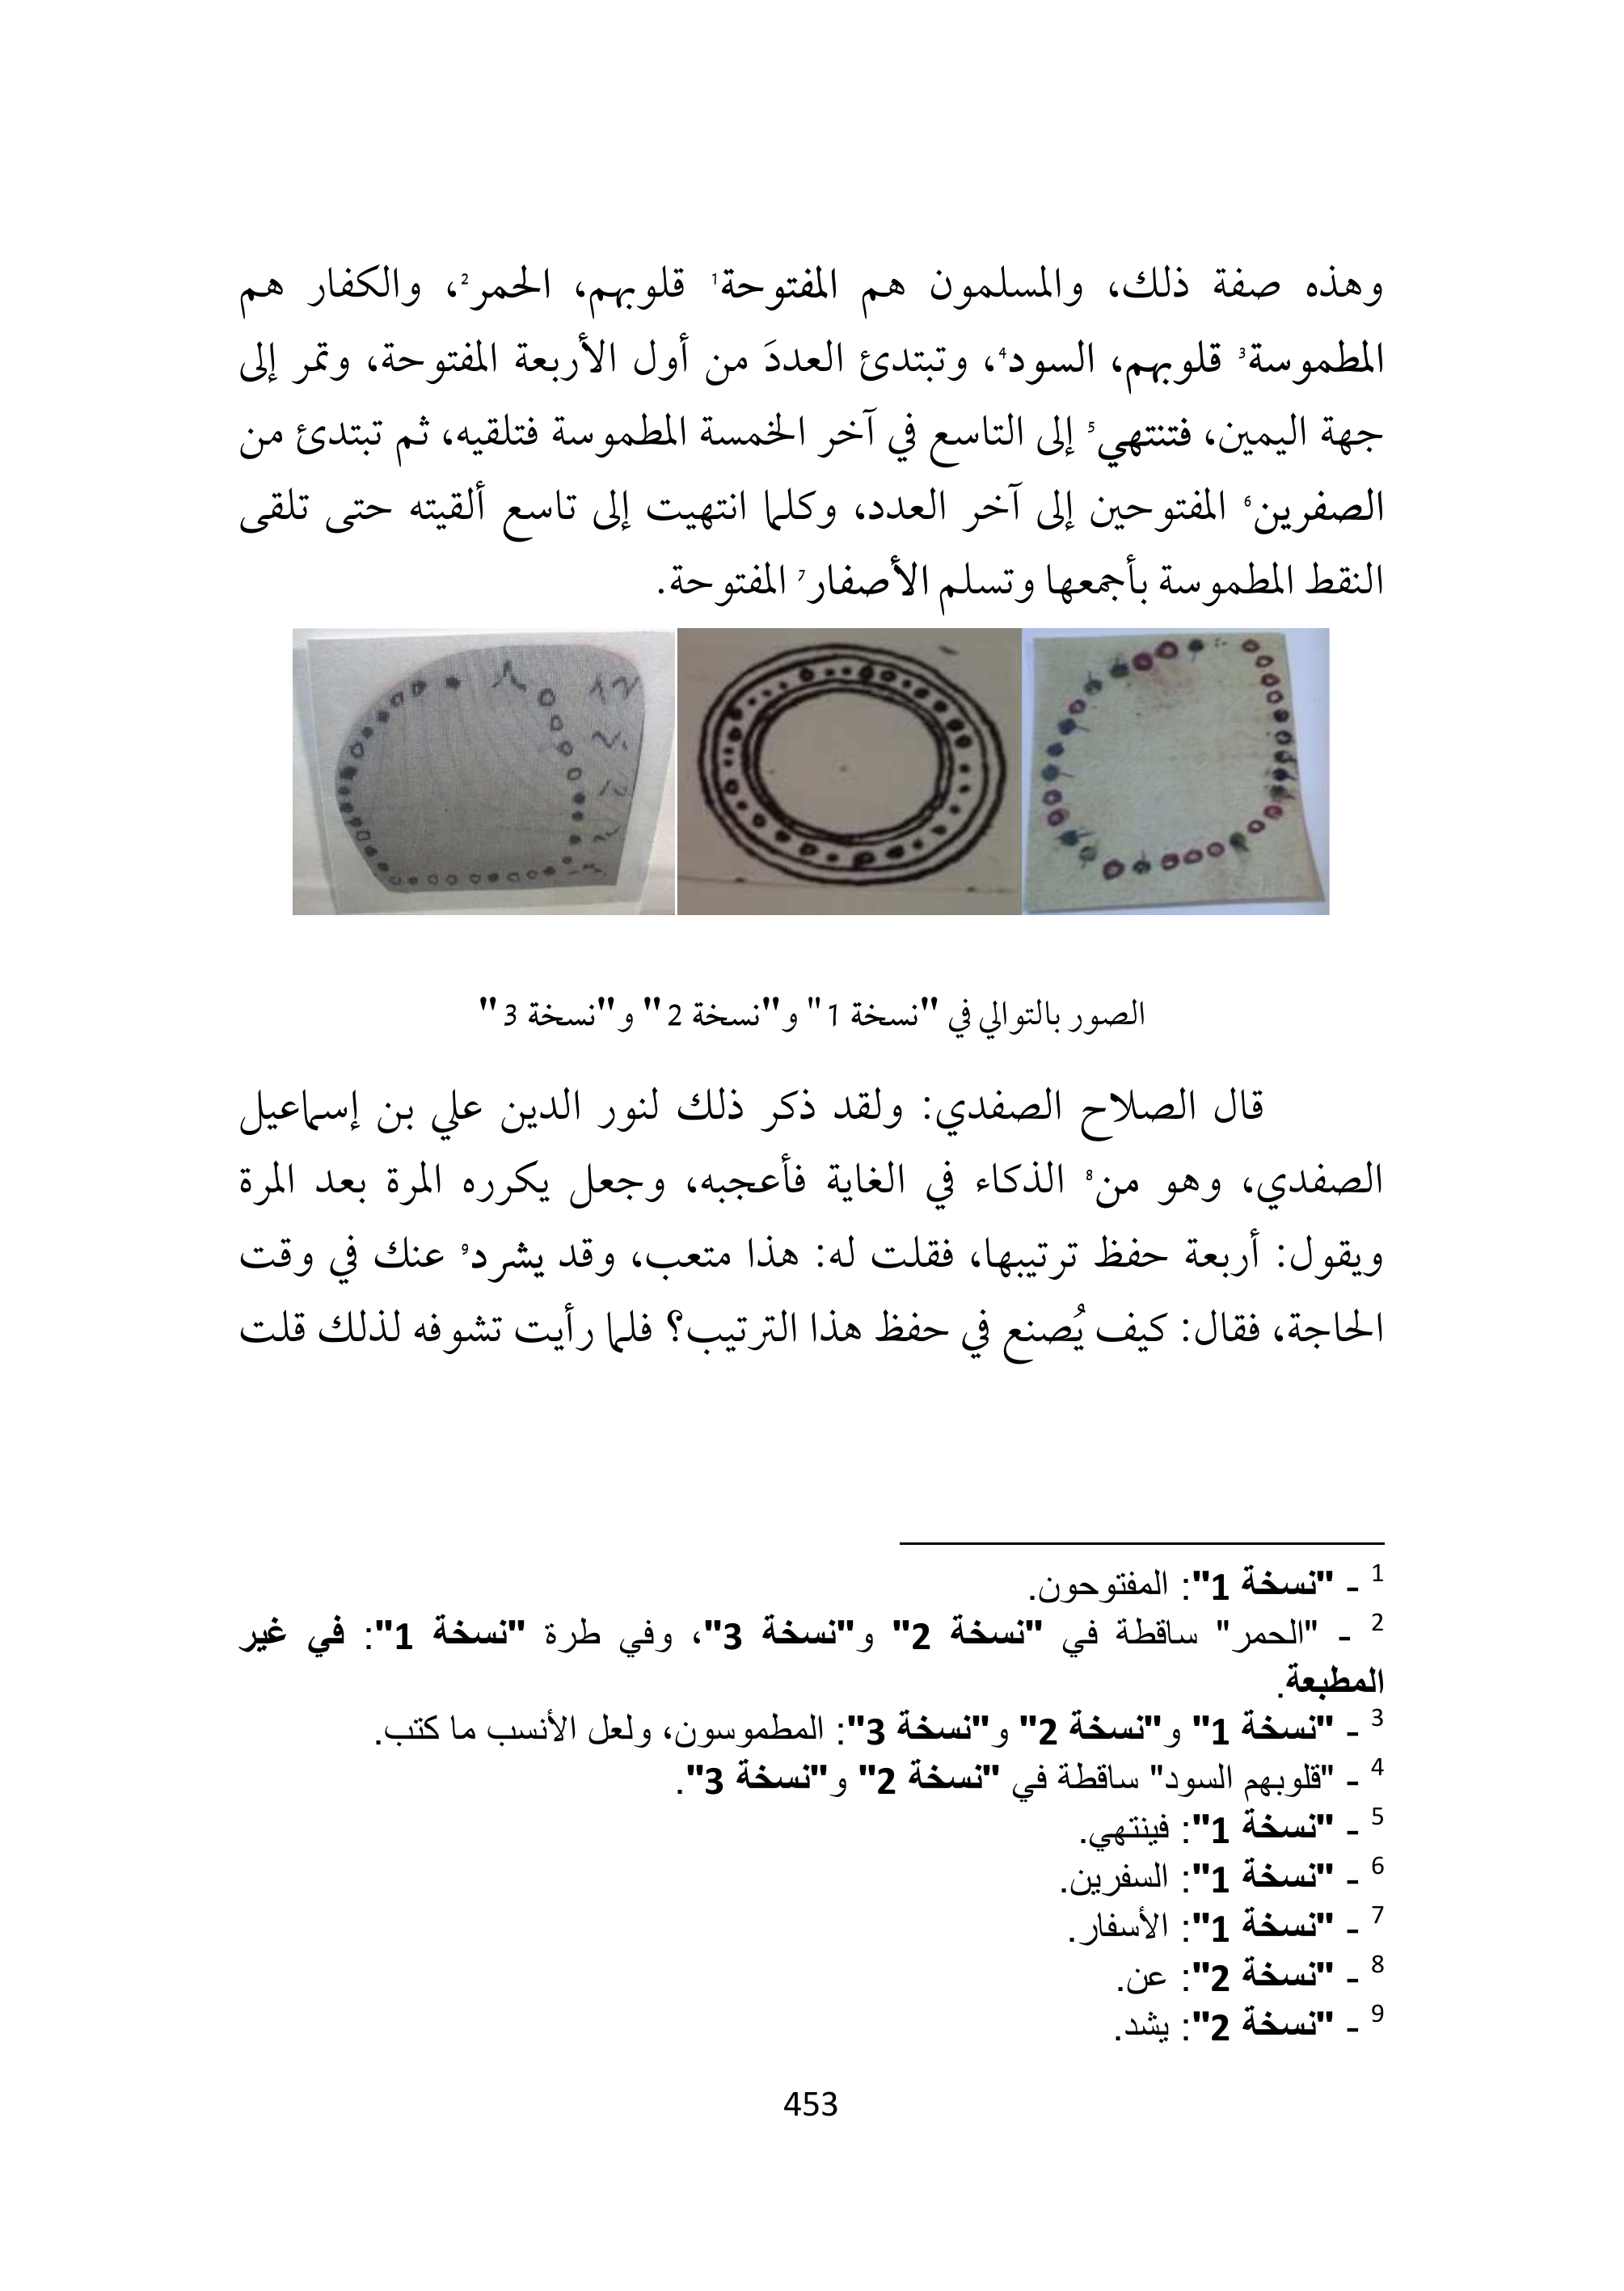 وهذه صفة ذلك، والمسلمون هم المفتوحة1 قلوبهم، الحمر2، والكفار هم
المطموسة3 قلوبهم، السود4، وتبتدئ العددَ من أول الأربعة المفتوحة، وتمر إلى
جهة اليمين، فتنتهي5 إلى التاسع في آخر الخمسة المطموسة فتلقيه، ثم تبتدئ من
الصفرين6 المفتوحين إلى آخر العدد، وكلما انتهيت إلى تاسع ألقيته حتى تلقى
النقط المطموسة بأجمعها وتسلم الأصفار7 المفتوحة.
الصور بالتوالي في "نسخة 1" و"نسخة 2" و"نسخة 3"
قال الصلاح الصفدي: ولقد ذكر ذلك لنور الدين علي بن إسماعيل
الصفدي، وهو من8 الذكاء في الغاية فأعجبه، وجعل يكرره المرة بعد المرة
ويقول: أربعة حفظ ترتيبها، فقلت له: هذا متعب، وقد يشرد9 عنك في وقت
الحاجة، فقال: كيف يُصنع في حفظ هذا الترتيب؟ فلما رأيت تشوفه لذلك قلت
1 - "نسخة 1": المفتوحون.
2 - "الحمر" ساقطة في "نسخة 2" و"نسخة 3"، وفي طرة "نسخة 1": في غير
المطبعة.
3 - "نسخة 1" و"نسخة 2" و"نسخة 3": المطموسون، ولعل الأنسب ما كتب.
4 - "قلوبهم السود" ساقطة في "نسخة 2" و"نسخة 3".
5 - "نسخة 1": فينتهي.
6 - "نسخة 1": السفرين.
7 - "نسخة 1": الأسفار.
8 - "نسخة 2": عن.
9 - "نسخة 2": يشد.
453